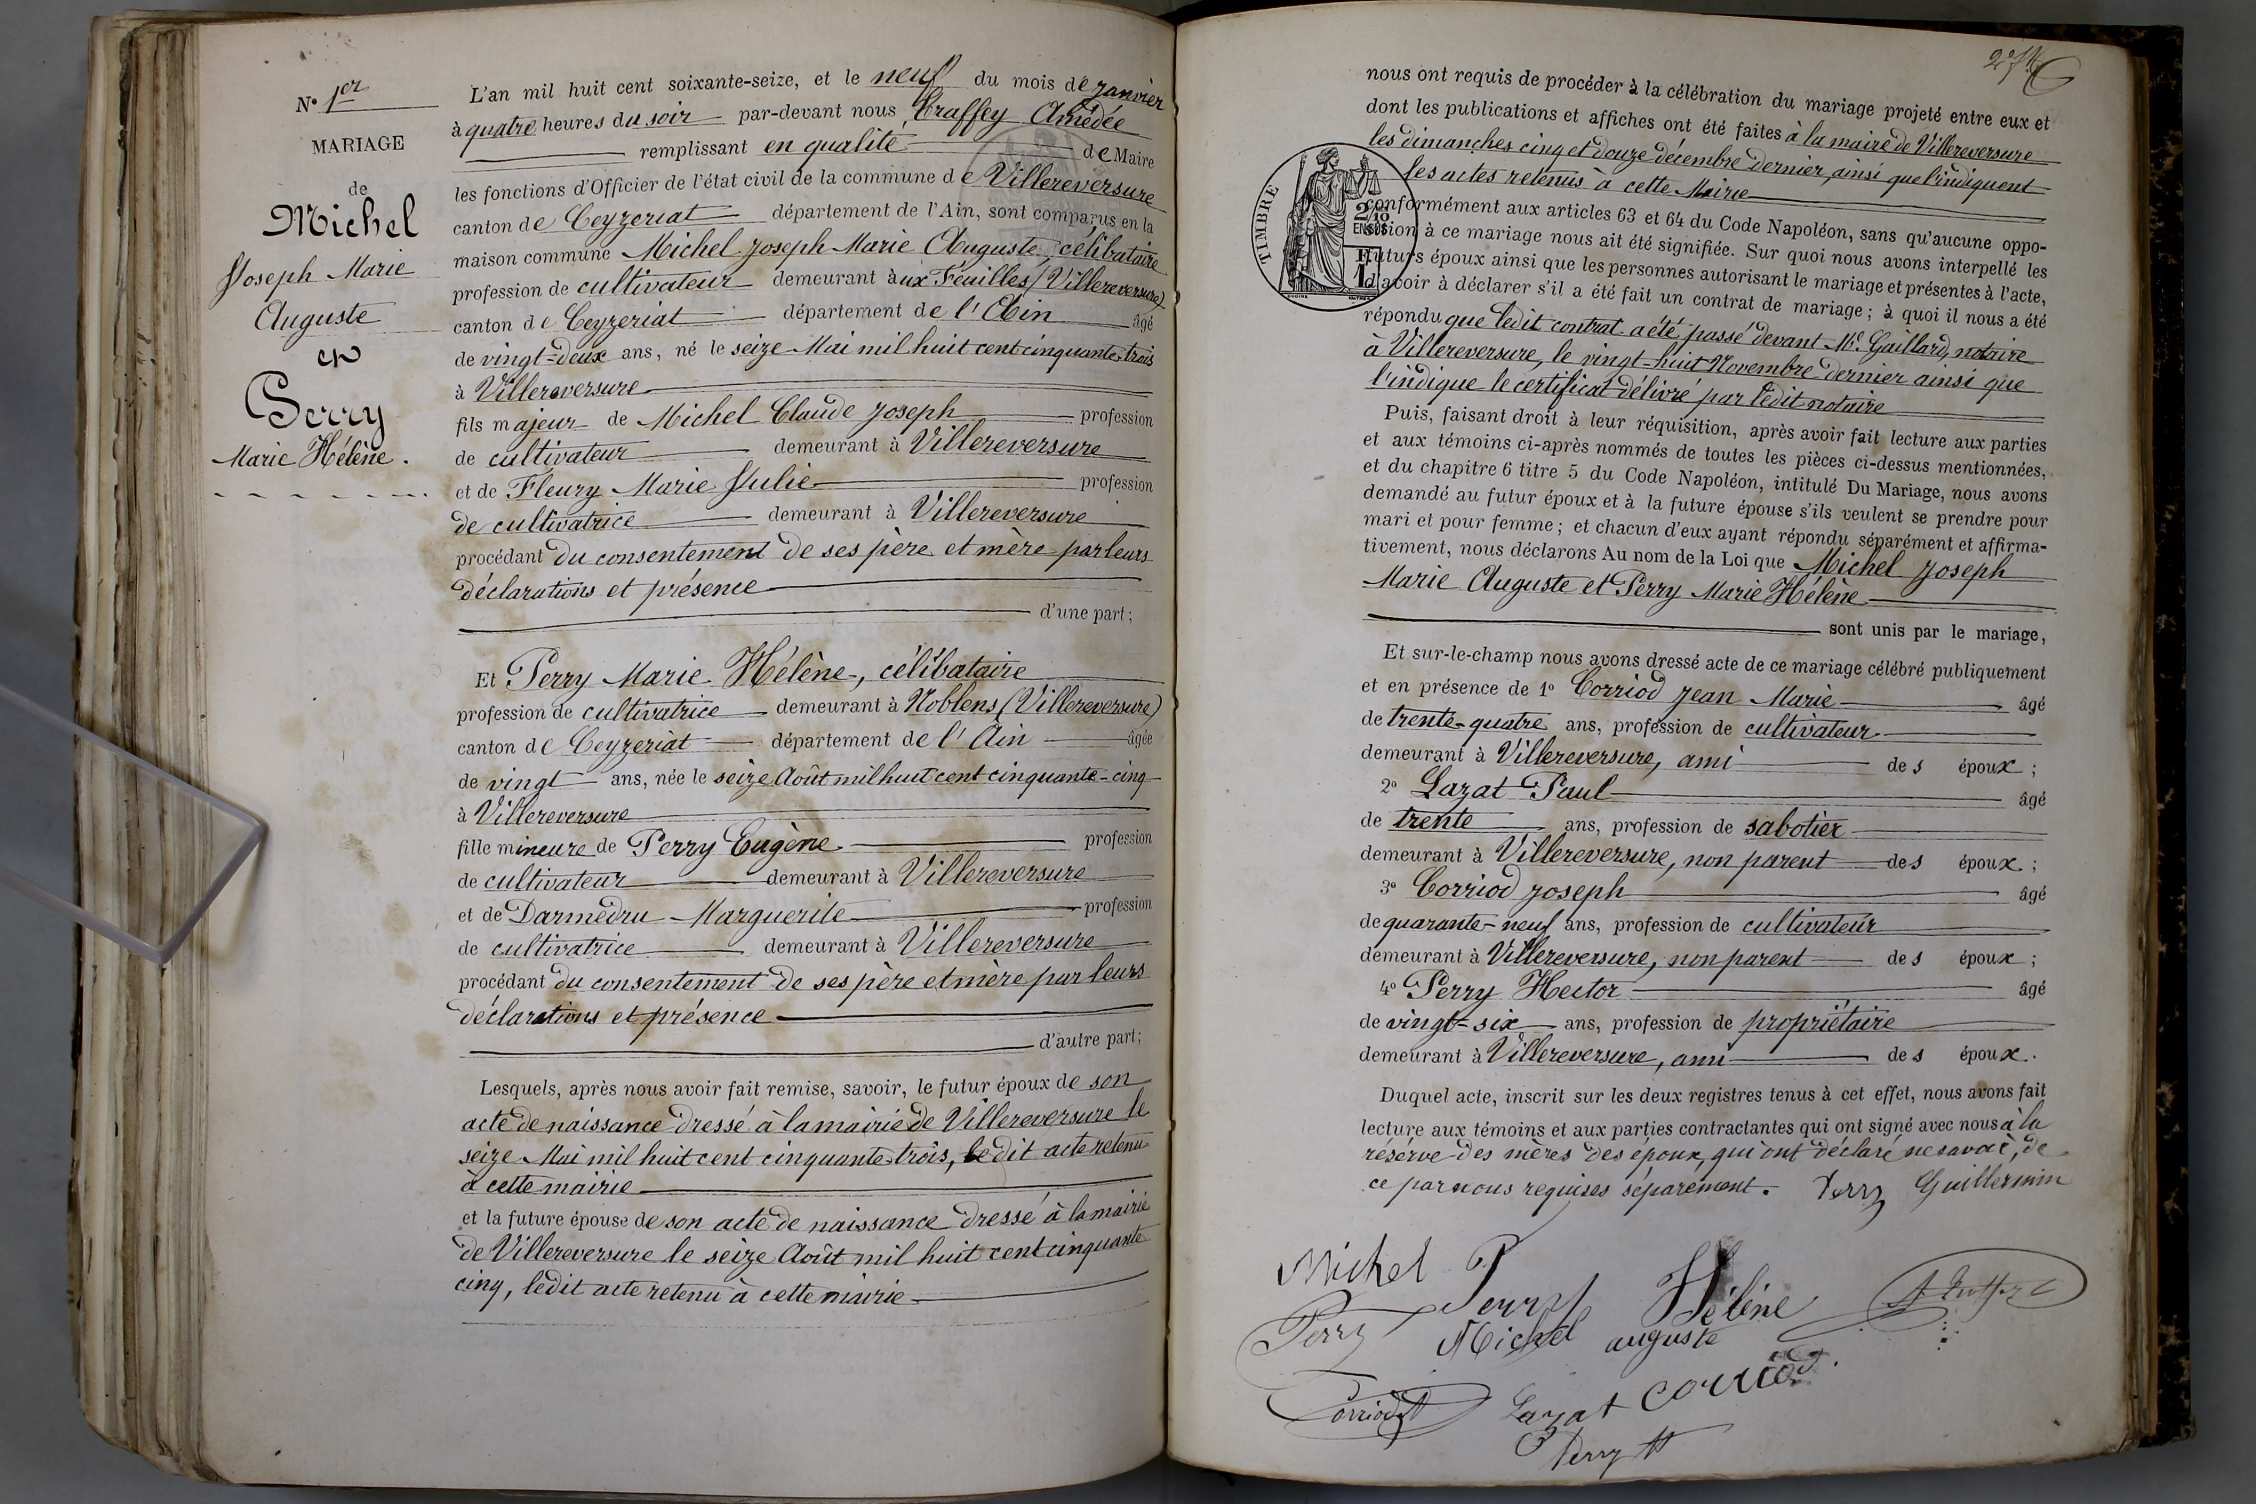 N° 1er
MARIAGE
de
Michel
Joseph Marie
Auguste
et
Perry
Marie Hélène.
L'an mil huit cent soixante-seize, et le neuf du mois de janvier
à quatre heures du soir par-devant nous, Craffey Amédée
remplissant en qualité de Maire
les fonctions d'Officier de l'état civil de la commune de Villereversure
canton de Ceyzeriat département de l'Ain, sont comparus en la
maison commune Michel Joseph Marie Auguste, célibataire
profession de cultivateur demeurant aux Feuilles (Villereversure)
canton de Ceyzeriat département de l'Ain âgé
de vingt-deux ans, né le seize Mai mil huit cent cinquante-trois
à Villereversure
fils majeur de Michel Claude Joseph profession
de cultivateur demeurant à Villereversure
et de Fleury Marie Julie profession
de cultivatrice demeurant à Villereversure
procédant du consentement de ses père et mère par leurs
déclarations et présence
d'une part;
Et Perry Marie Hélène, célibataire
profession de cultivatrice demeurant à Noblens (Villereversure)
canton de Ceyzeriat département de l'Ain âgée
de vingt ans, née le seize Août mil huit cent cinquante-cinq
à Villereversure
fille mineure de Perry Eugène profession
de cultivateur demeurant à Villereversure
et de Darmedru Marguerite profession
de cultivatrice demeurant à Villereversure
procédant du consentement de ses père et mère par leurs
déclarations et présence
d'autre part;
Lesquels, après nous avoir fait remise, savoir, le futur époux de son
acte de naissance dressé à la mairie de Villereversure le
seize Mai mil huit cent cinquante-trois, ledit acte retenu
à cette mairie
et la future épouse de son acte de naissance dressé à la mairie
de Villereversure le seize Août mil huit cent cinquante
cinq, ledit acte retenu à cette mairie
nous ont requis de procéder à la célébration du mariage projeté entre eux et
dont les publications et affiches ont été faites à la mairie de Villereversure
les dimanches cinq et douze décembre dernier, ainsi que l'indiquent
les actes retenus à cette Mairie
conformément aux articles 63 et 64 du Code Napoléon, sans qu'aucune oppo-
sition à ce mariage nous ait été signifiée. Sur quoi nous avons interpellé les
futurs époux ainsi que les personnes autorisant le mariage et présentes à l'acte,
d'avoir à déclarer s'il a été fait un contrat de mariage; à quoi il nous a été
répondu que ledit contrat a été passé devant Me. Gaillard, notaire
à Villereversure, le vingt-huit Novembre dernier ainsi que
l'indique le certificat délivré par ledit notaire
Puis, faisant droit à leur réquisition, après avoir fait lecture aux parties
et aux témoins ci-après nommés de toutes les pièces ci-dessus mentionnées,
et du chapitre 6 titre 5 du Code Napoléon, intitulé Du Mariage, nous avons
demandé au futur époux et à la future épouse s'ils veulent se prendre pour
mari et pour femme; et chacun d'eux ayant répondu séparément et affirma-
tivement, nous déclarons Au nom de la Loi que Michel Joseph
Marie Auguste et Perry Marie Hélène
sont unis par le mariage,
Et sur-le-champ nous avons dressé acte de ce mariage célébré publiquement
et en présence de 1° Corriod Jean Marie âgé
de trente-quatre ans, profession de cultivateur
demeurant à Villereversure, ami des époux;
2° Lazat Paul âgé
de trente ans, profession de sabotier
demeurant à Villereversure, non parent des époux;
3° Corriod Joseph âgé
de quarante-neuf ans, profession de cultivateur
demeurant à Villereversure, non parent des époux;
4° Perry Hector âgé
de vingt-six ans, profession de propriétaire
demeurant à Villereversure, ami des époux.
Duquel acte, inscrit sur les deux registres tenus à cet effet, nous avons fait
lecture aux témoins et aux parties contractantes qui ont signé avec nous à la
réserve des mères des époux, qui ont déclaré ne savoir, de
ce par nous requises séparément. Perry Guillermin
Michel Perry Hélène
Perry Michel auguste
Corriod Lazat corriod
Perry H
TIMBRE
2/10
EN SUS
1F